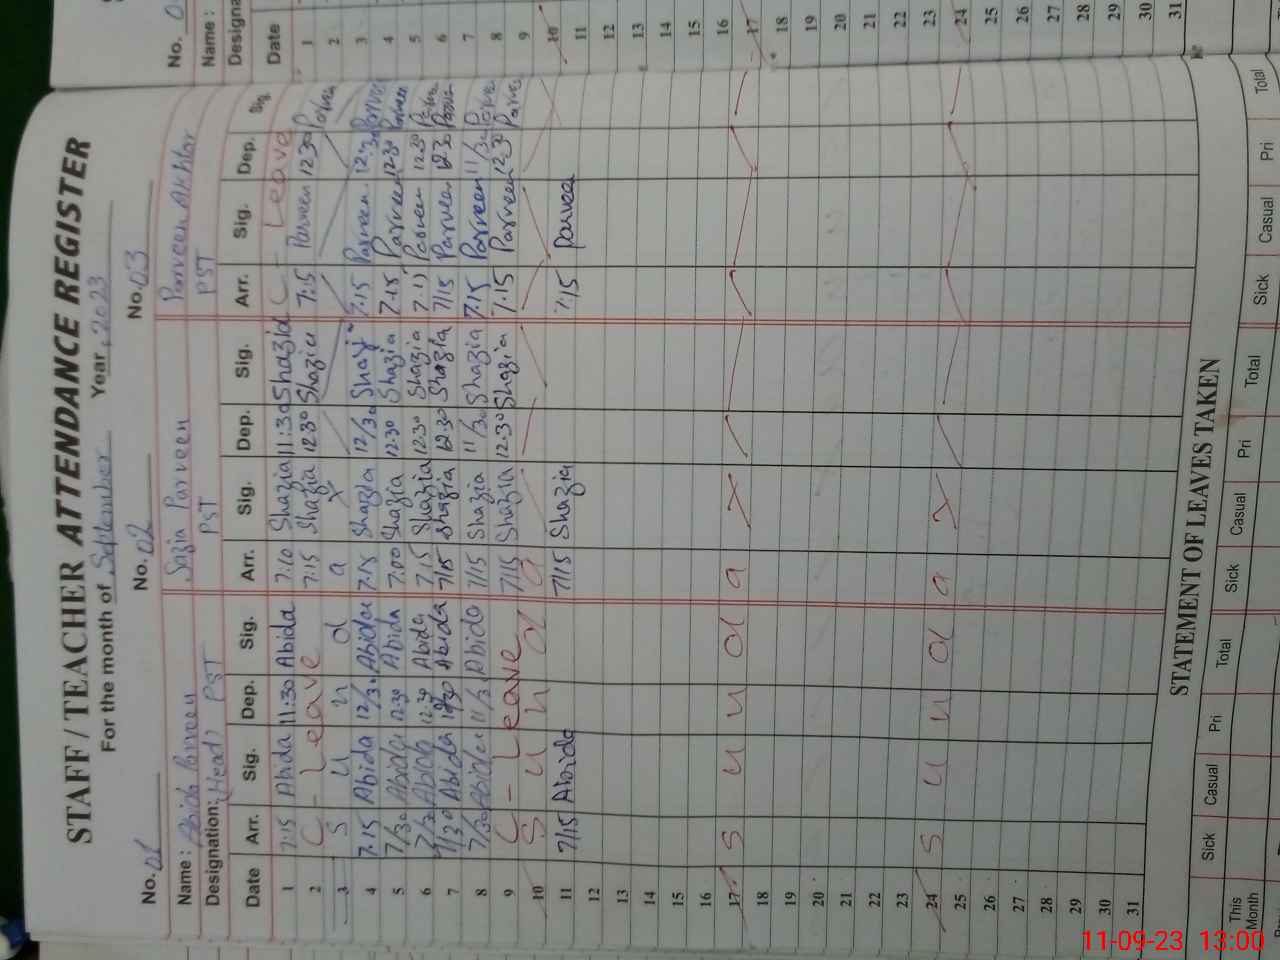 STAFF / TEACHER ATTENDANCE REGISTER
For the month of September Year, 2023
No. 01 No. 02 No. 03
Name : Abida Parveen Sazia Parveen Parveen Akhtar
Designation: (Head) PST PST PST
Date Arr. Sig. Dep. Sig. Arr. Sig. Dep. Sig. Arr. Sig. Dep. Sig.
1 7:15 Abida 11:30 Abida 7:10 Shazia 11:30 Shazia C - Leave
2 C - Leave 7:15 Shazia 12:30 Shazia 7:15 Parveen 12:30
3 S u n d a y
4 7:15 Abida 12/30 Abida 7:15 Shazia 12/30 7:15 Parveen 12:30
5 7/30 Abida 12:30 Abida 7:00 Shazia 12:30 Shazia 7:15 Parveen 12:30
6 7/30 Abida 12:30 Abida 7:15 Shazia 12:30 Shazia 7:15 Parveen 12:30
7 7/30 Abida 12:30 Abida 7/15 Shazia 12:30 Shazia 7/15 Parveen 12:30
8 7/30 Abida 11/30 Abida 7/15 Shazia 11/30 Shazia 7:15 Parveen 11/30
9 C - Leave 7/15 Shazia 12:30 Shazia 7:15 Parveen 12:30
10 S u n d a
11 7/15 Abida 7/15 Shazia 7:15 Parveen
12
13
14
15
16
17 S u n d a y
18
19
20
21
22
23
24 S u n d a y
25
26
27
28
29
30
31
STATEMENT OF LEAVES TAKEN
Sick Casual Pri Total Sick Casual Pri Total Sick Casual Pri Total
This Month
No.
Name :
Designa
Date
1
2
3
4
5
6
7
8
9
10
11
12
13
14
15
16
17
18
19
20
21
22
23
24
25
26
27
28
29
30
31
11-09-23 13:00